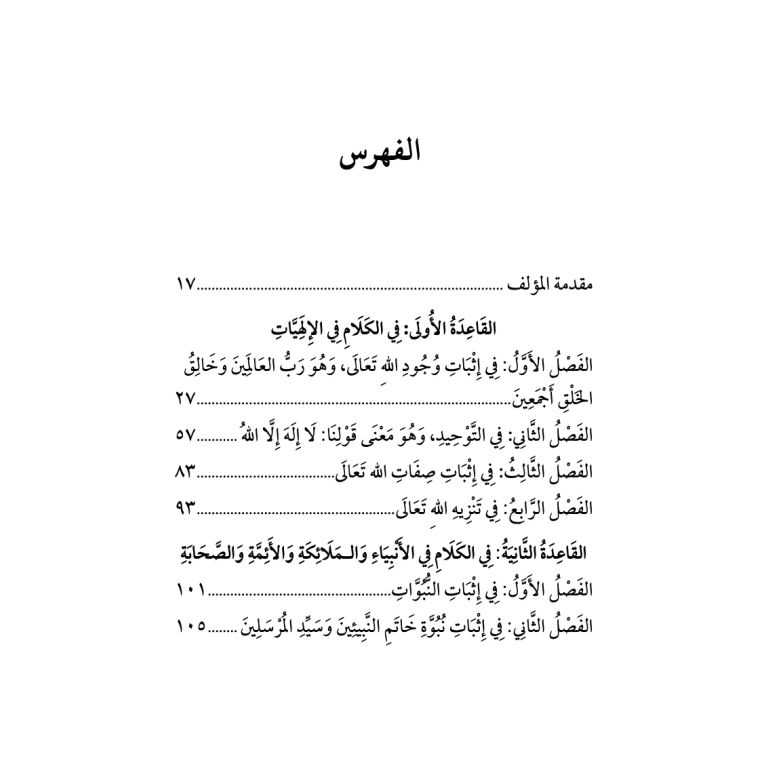 الفهرس
مقدمة المؤلف ........................................................................... ١٧
القَاعِدَةُ الأُولَى: فِي الكَلَامِ فِي الإِلَهِيَّاتِ
الفَصْلُ الأَوَّلُ: فِي إِثْبَاتِ وُجُودِ اللهِ تَعَالَى، وَهُوَ رَبُّ العَالَمِينَ وَخَالِقُ
الخَلْقِ أَجْمَعِينَ............................................................................ ٢٧
الفَصْلُ الثَّانِي: فِي التَّوْحِيدِ، وَهُوَ مَعْنَى قَوْلِنَا: لَا إِلَهَ إِلَّا اللهُ ........... ٥٧
الفَصْلُ الثَّالِثُ: فِي إِثْبَاتِ صِفَاتِ الله تَعَالَى.................................. ٨٣
الفَصْلُ الرَّابِعُ: فِي تَنْزِيهِ اللهِ تَعَالَى................................................ ٩٣
القَاعِدَةُ الثَّانِيَةُ: فِي الكَلَامِ فِي الأَنْبِيَاءِ وَالـمَلَائِكَةِ وَالأَئِمَّةِ وَالصَّحَابَةِ
الفَصْلُ الأَوَّلُ: فِي إِثْبَاتِ النُّبُوَّاتِ............................................. ١٠١
الفَصْلُ الثَّانِي: فِي إِثْبَاتِ نُبُوَّةِ خَاتَمِ النَّبِيئِينَ وَسَيِّدِ المُرْسَلِينَ ........ ١٠٥